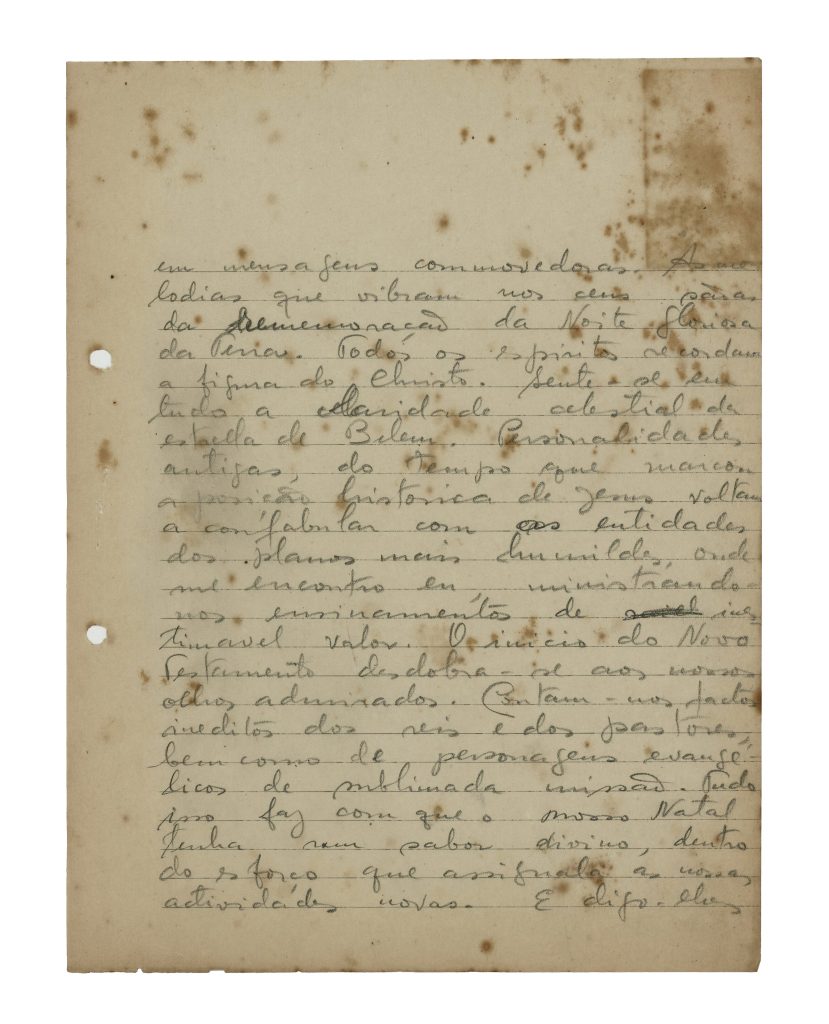 em mensagens commovedoras. As me-
lodias que vibram nos ceus são as
da rememoração da Noite gloriosa
da Terra. Todos os espiritos recordam
a figura do Christo. Sente-se em
tudo a claridade celestial da
estrella de Belem. Personalidades
antigas, do tempo que marcou
a posição historica de Jesus voltam
a confabular com as entidades
dos planos mais humildes, onde
me encontro eu, ministrando-
nos ensinamentos de ines-
timavel valor. O inicio do Novo
Testamento desdobra-se aos nossos
olhos admirados. Contam-nos factos
ineditos dos reis e dos pastores,
bem como de personagens evangé-
licos de sublimada missão. Tudo
isso faz com que o nosso Natal
tenha um sabor divino, dentro
do esforço que assignala as nossas
actividades novas. E digo-lhes